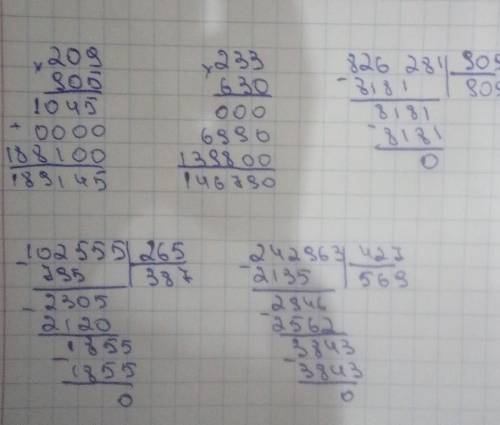 × 209
905
1045
+ 0000
188100
189145
× 233
630
000
6990
139800
146790
- 826 281 | 909
8181 | 909
8181
- 8181
0
- 102555 | 265
795 | 387
- 2305
2120
- 1855
1855
0
- 242963 | 427
2135 | 569
- 2946
2562
- 3843
3843
0